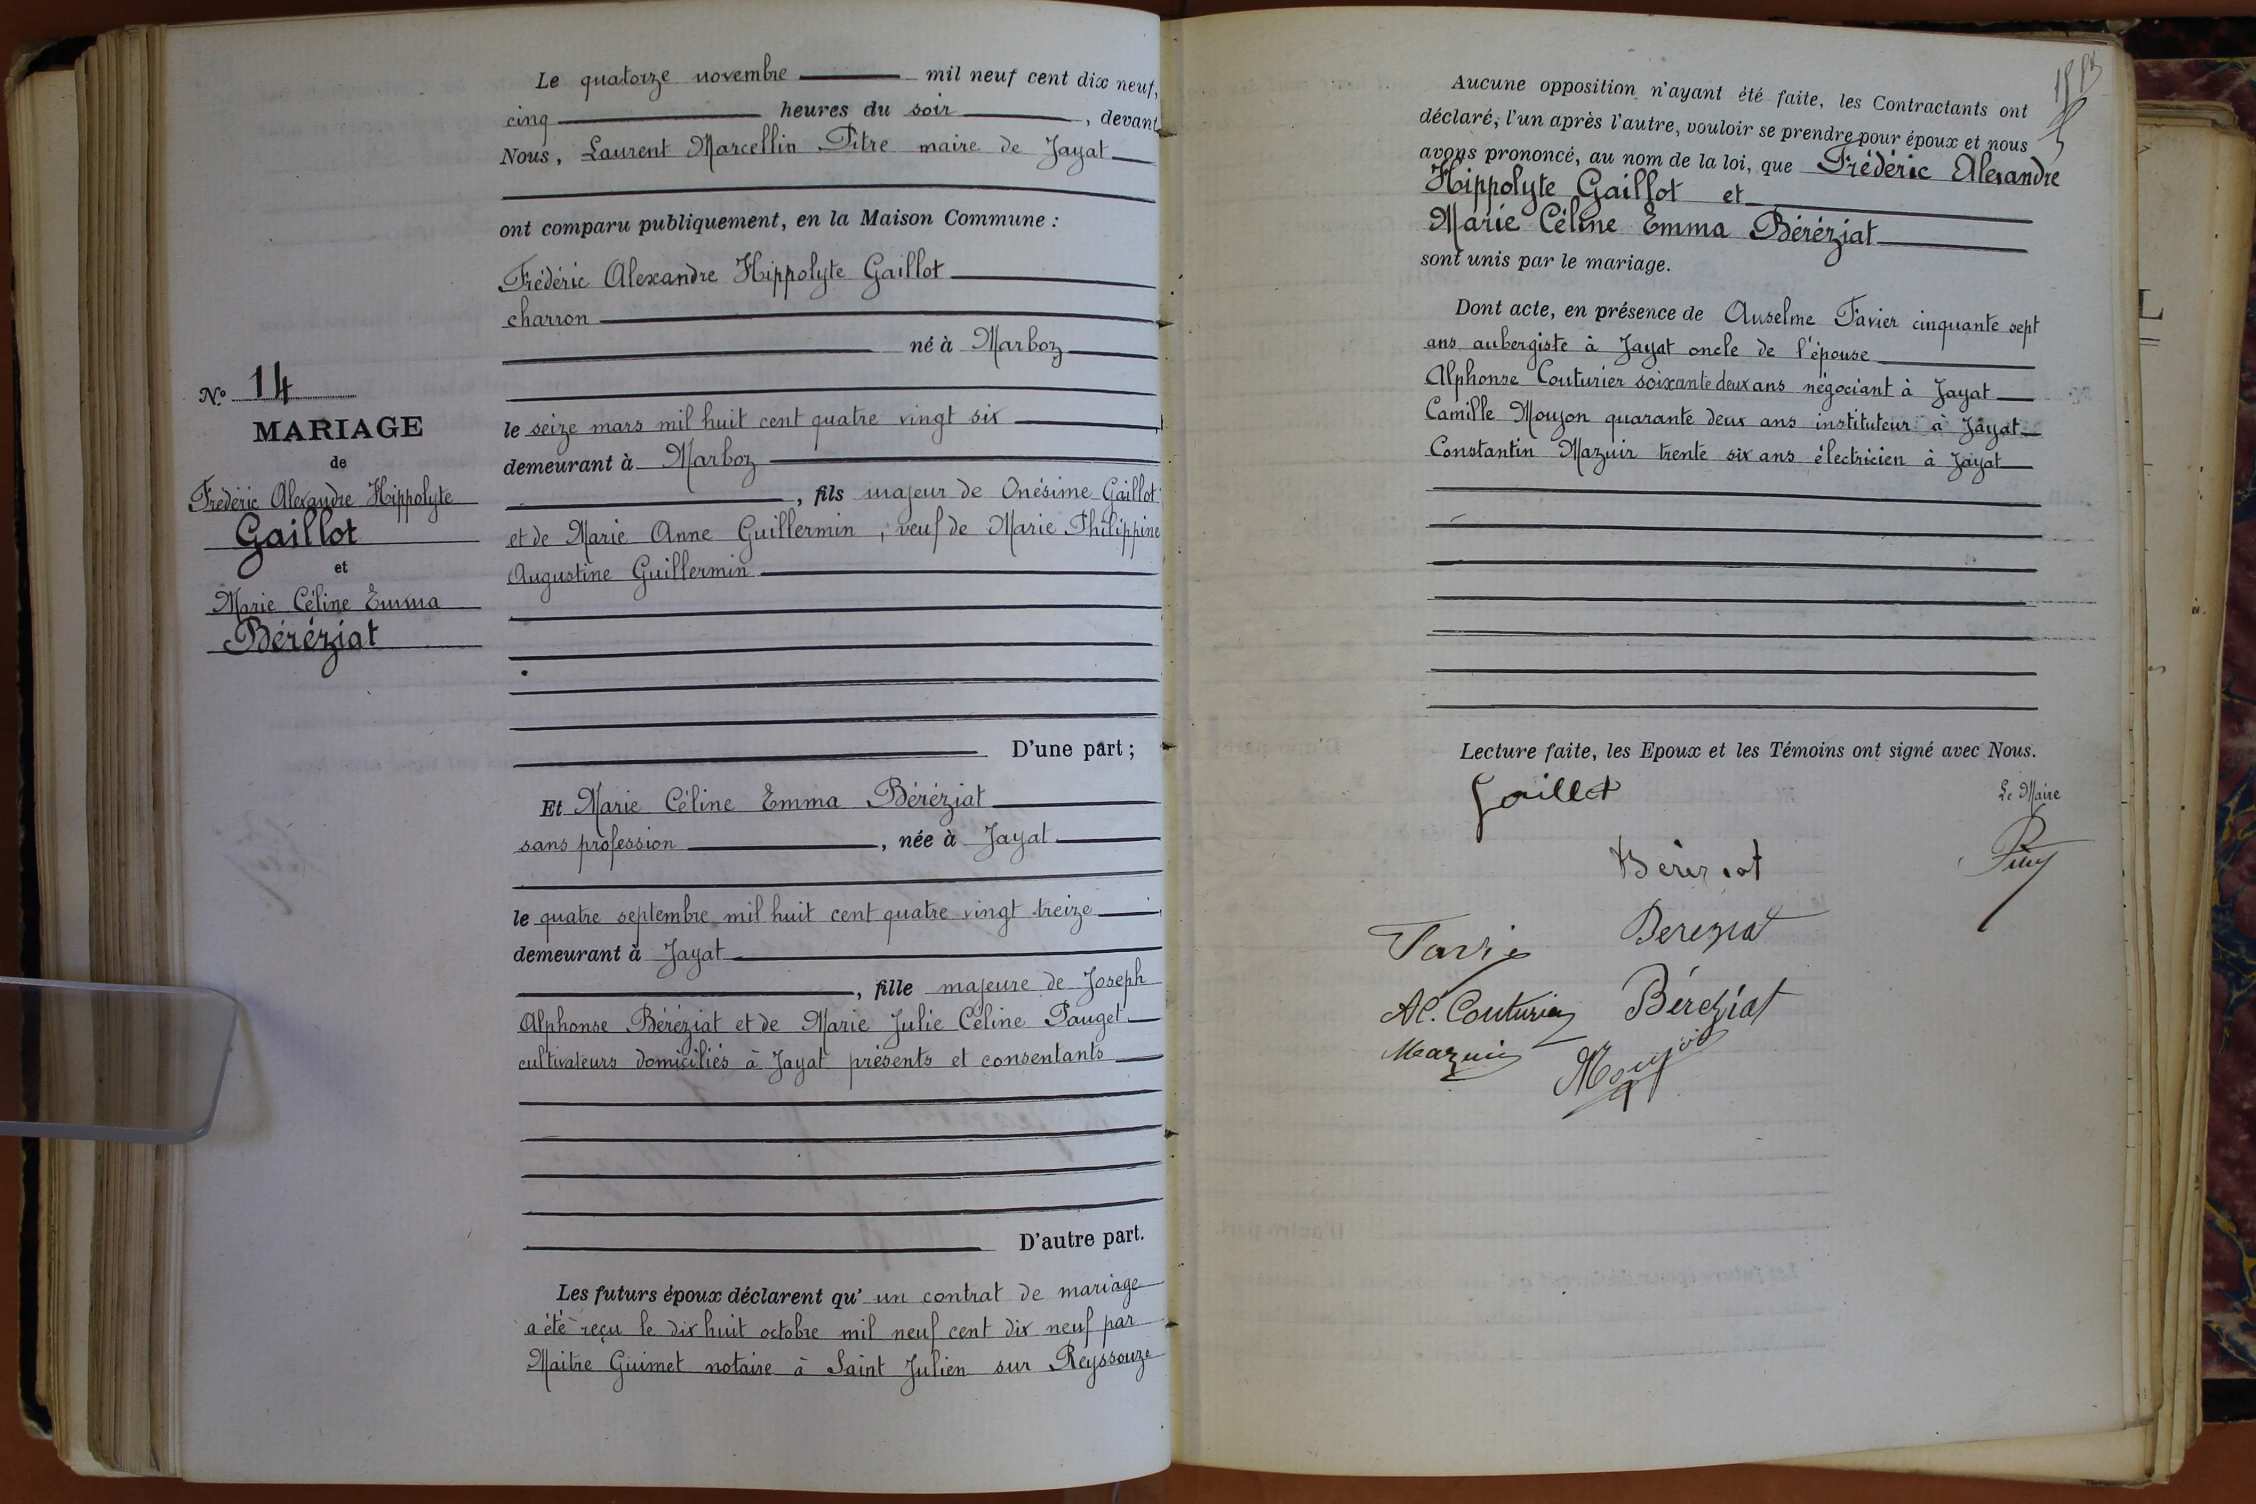 Le quatorze novembre mil neuf cent dix neuf,
cinq heures du soir, devant
Nous, Laurent Marcellin Pitre maire de Jayat
ont comparu publiquement, en la Maison Commune :
Frédéric Alexandre Hippolyte Gaillot
charron
né à Marboz
le seize mars mil huit cent quatre vingt six
demeurant à Marboz
, fils majeur de Onésime Gaillot
et de Marie Anne Guillermin, veuf de Marie Philippine
Augustine Guillermin
D'une part ;
Et Marie Céline Emma Béréziat
sans profession, née à Jayat
le quatre septembre mil huit cent quatre vingt treize
demeurant à Jayat
, fille majeure de Joseph
Alphonse Béréziat et de Marie Julie Céline Pauget
cultivateurs domiciliés à Jayat présents et consentants
D'autre part.
Les futurs époux déclarent qu'un contrat de mariage
a été reçu le dix huit octobre mil neuf cent dix neuf par
Maitre Guimet notaire à Saint Julien sur Reyssouze
No 14
MARIAGE
de
Frédéric Alexandre Hippolyte
Gaillot
et
Marie Céline Emma
Béréziat
Aucune opposition n'ayant été faite, les Contractants ont
déclaré, l'un après l'autre, vouloir se prendre pour époux et nous
avons prononcé, au nom de la loi, que Frédéric Alexandre
Hippolyte Gaillot et
Marie Céline Emma Béréziat
sont unis par le mariage.
Dont acte, en présence de Anselme Favier cinquante sept
ans aubergiste à Jayat oncle de l'épouse
Alphonse Couturier soixante deux ans négociant à Jayat
Camille Moyon quarante deux ans instituteur à Jayat
Constantin Mazuir trente six ans électricien à Jayat
Lecture faite, les Epoux et les Témoins ont signé avec Nous.
Gaillot
Le Maire
Béréziat
Bereziat
Favier
Al. Couturier
Béréziat
Mazuir